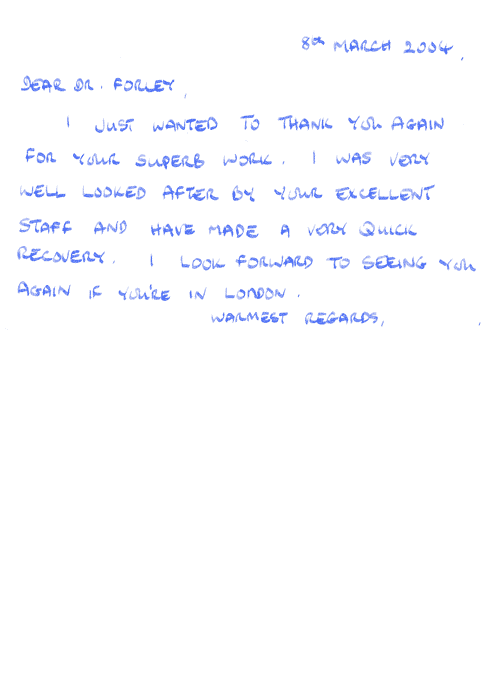 8th MARCH 2004,
DEAR DR. FORLEY,
I JUST WANTED TO THANK YOU AGAIN
FOR YOUR SUPERB WORK. I WAS VERY
WELL LOOKED AFTER BY YOUR EXCELLENT
STAFF AND HAVE MADE A VERY QUICK
RECOVERY. I LOOK FORWARD TO SEEING YOU
AGAIN IF YOU'RE IN LONDON.
WARMEST REGARDS,